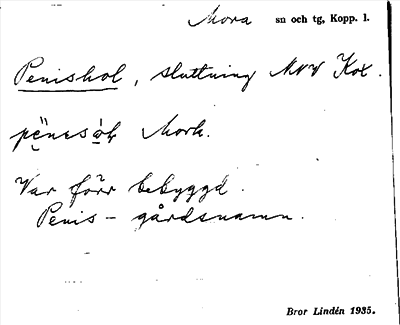 Mora sn och tg, Kopp. l.
Penishol, sluttning NVV Kox.
Mork.
Var förr bebyggd.
Penis- gårdsnamn.
Bror Lindén 1935.